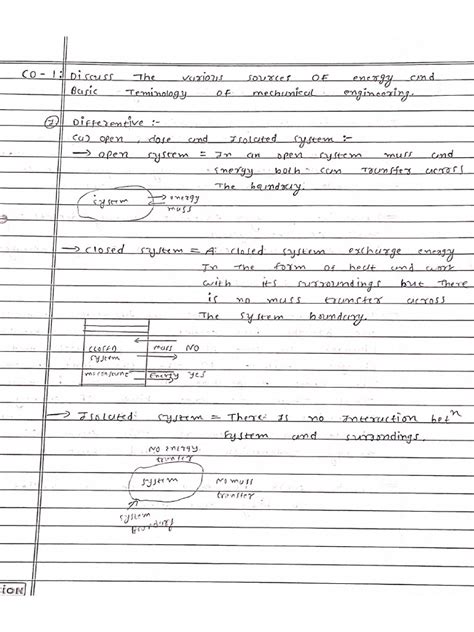 CO-1: Discuss The various sources OF energy and
Basic Teminology of mechanical engineering.
① Differentive :-
(a) open, close and Isolated system :-
→ open system = In an open system mass and
energy both can Transfer across
The boundray.
system
energy
mass
→ closed system = A closed system exchurge energy
In The form of heat and work
with it's surroundings but There
is no mass transfer across
The system boundary.
CLOSED
system
mass NO
Energy yes
→ Isolated system = There Is no Interaction betn
System and surrondings.
NO Energy
transfer
System
NO mass
transfer
system
ION